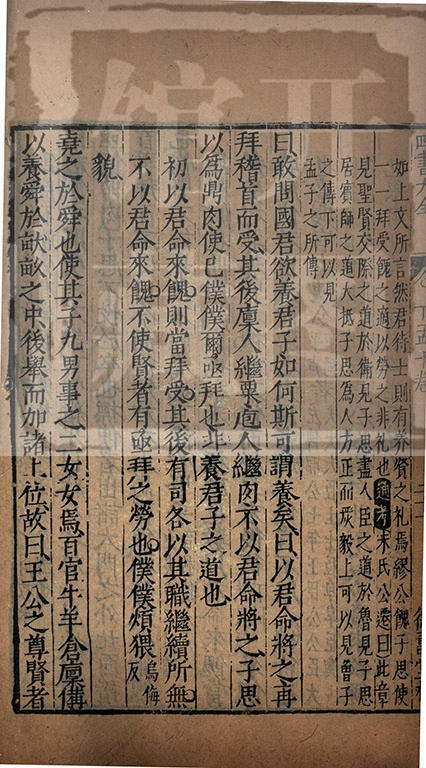 四書大全
如上文所言然君待士則有养賢之礼焉繆公餽子思使
一一拜受餽之適以勞之非礼也通考朱氏公遷曰此章
見聖賢交際之道於衛見子思盡人臣之道於魯見子思
居賓師之道大抵子思為人方正而嚴毅上可以見曾子
之傳下可以見
孟子之所傳
曰敢問國君欲養君子如何斯可謂養矣曰以君命將之再
拜稽首而受其後廩人繼粟庖人繼肉不以君命將之子思
以為鼎肉使己僕僕爾亟拜也非養君子之道也
初以君命來餽則當拜受其後有司各以其職繼續所無
不以君命來餽不使賢者有亟拜之勞也僕僕煩猥烏侮反
貌
堯之於舜也使其子九男事之二女女焉百官牛羊倉廩備
以養舜於畎畝之中後舉而加諸上位故曰王公之尊賢者